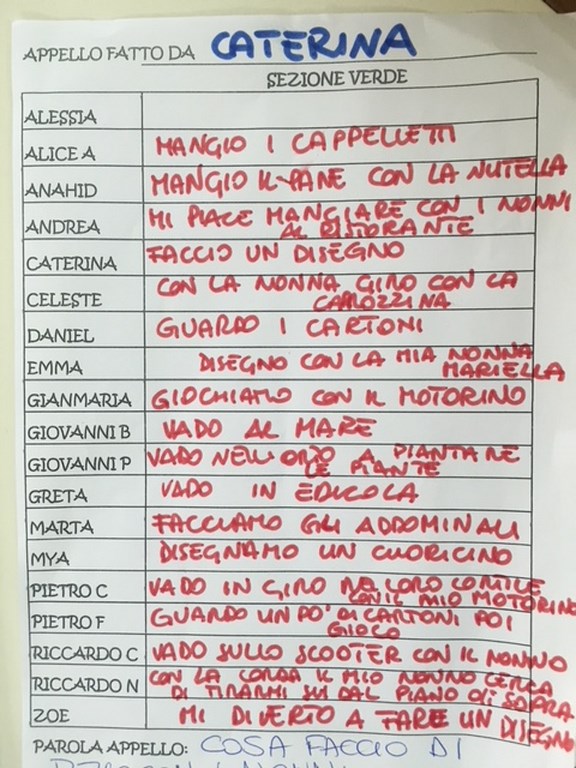 APPELLO FATTO DA CATERINA
SEZIONE VERDE
ALESSIA
ALICE A MANGIO I CAPPELLETTI
ANAHID MANGIO IL PANE CON LA NUTELLA
ANDREA MI PIACE MANGIARE CON I NONNI
AL RISTORANTE
CATERINA FACCIO UN DISEGNO
CELESTE CON LA NONNA GIRO CON LA
CARROZZINA
DANIEL GUARDO I CARTONI
EMMA DISEGNO CON LA MIA NONNA
MARIELLA
GIANMARIA GIOCHIAMO CON IL MOTORINO
GIOVANNI B VADO AL MARE
GIOVANNI P VADO NELL'ORTO A PIANTARE
LE PIANTE
GRETA VADO IN EDICOLA
MARTA FACCIAMO GLI ADDOMINALI
MYA DISEGNAMO UN CUORICINO
PIETRO C VADO IN GIRO NEL LORO CORTILE
CON IL MIO MOTORINO
PIETRO F GUARDO UN PO' DI CARTONI POI
GIOCO
RICCARDO C VADO SULLO SCOOTER CON IL NONNO
RICCARDO N CON LA CORDA IL MIO NONNO CERCA
DI TIRARMI SU DAL PIANO DI SOPRA
ZOE MI DIVERTO A FARE UN DISEGNO
PAROLA APPELLO: COSA FACCIO DI